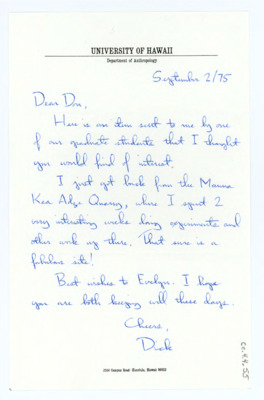 UNIVERSITY OF HAWAII
Department of Anthropology
September 2/75
Dear Don,
Here is an item sent to me by one
of our graduate students that I thought
you would find of interest.
I just got back from the Mauna
Kea Adze Quarry, where I spent 2
very interesting weeks doing experiments and
other work up there. That sure is a
fabulous site!
Best wishes to Evelyn. I hope
you are both keeping well these days.
Cheers,
Dick
Honolulu, Hawaii 96822